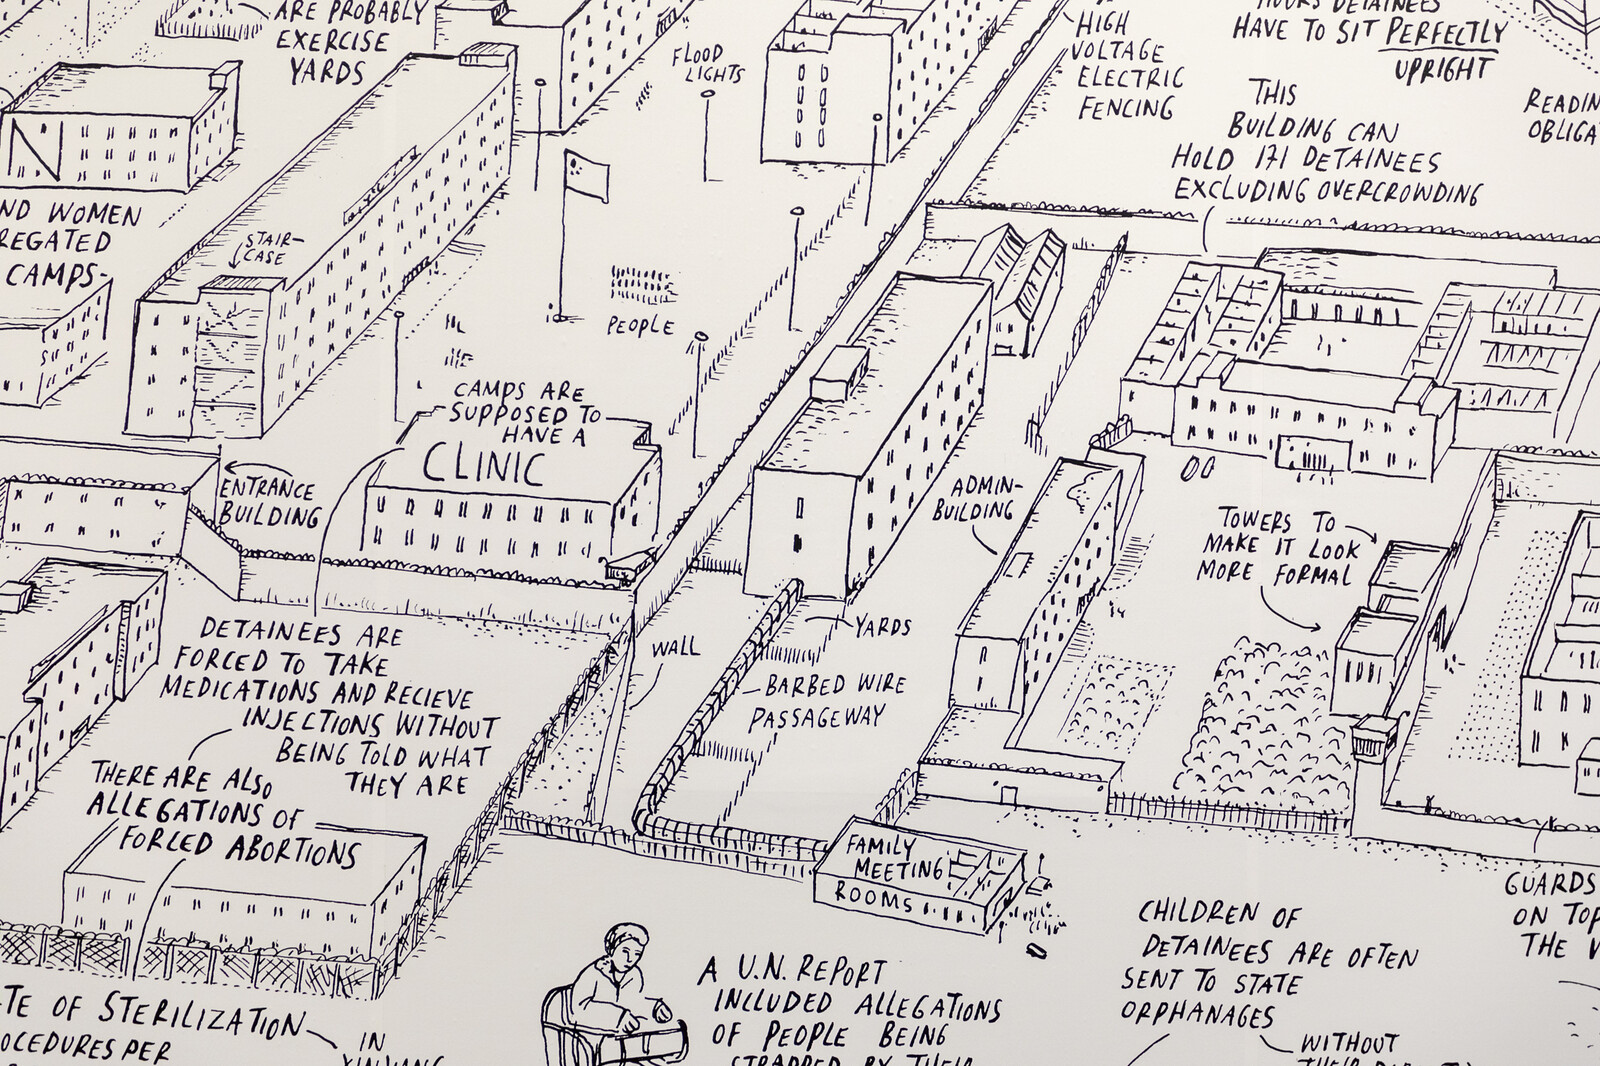 ARE PROBABLY
EXERCISE
YARDS
FLOOD
LIGHTS
HIGH
VOLTAGE
ELECTRIC
FENCING
HOURS DETAINEES
HAVE TO SIT PERFECTLY
UPRIGHT
THIS
BUILDING CAN
HOLD 171 DETAINEES
EXCLUDING OVERCROWDING
READIN
OBLIGA
N
ND WOMEN
REGATED
CAMPS-
STAIR-
CASE
PEOPLE
CAMPS ARE
SUPPOSED TO
HAVE A
CLINIC
ENTRANCE
BUILDING
ADMIN-
BUILDING
TOWERS TO
MAKE IT LOOK
MORE FORMAL
DETAINEES ARE
FORCED TO TAKE
MEDICATIONS AND RECIEVE
INJECTIONS WITHOUT
BEING TOLD WHAT
THEY ARE
WALL
YARDS
BARBED WIRE
PASSAGEWAY
THERE ARE ALSO
ALLEGATIONS OF
FORCED ABORTIONS
FAMILY
MEETING
ROOMS
GUARDS
ON TOP
THE
CHILDREN OF
DETAINEES ARE OFTEN
SENT TO STATE
ORPHANAGES
WITHOUT
A U.N. REPORT
INCLUDED ALLEGATIONS
OF PEOPLE BEING
STRAPPED BY THEIR
TE OF STERILIZATION
OCEDURES PER
IN
XINJIANG